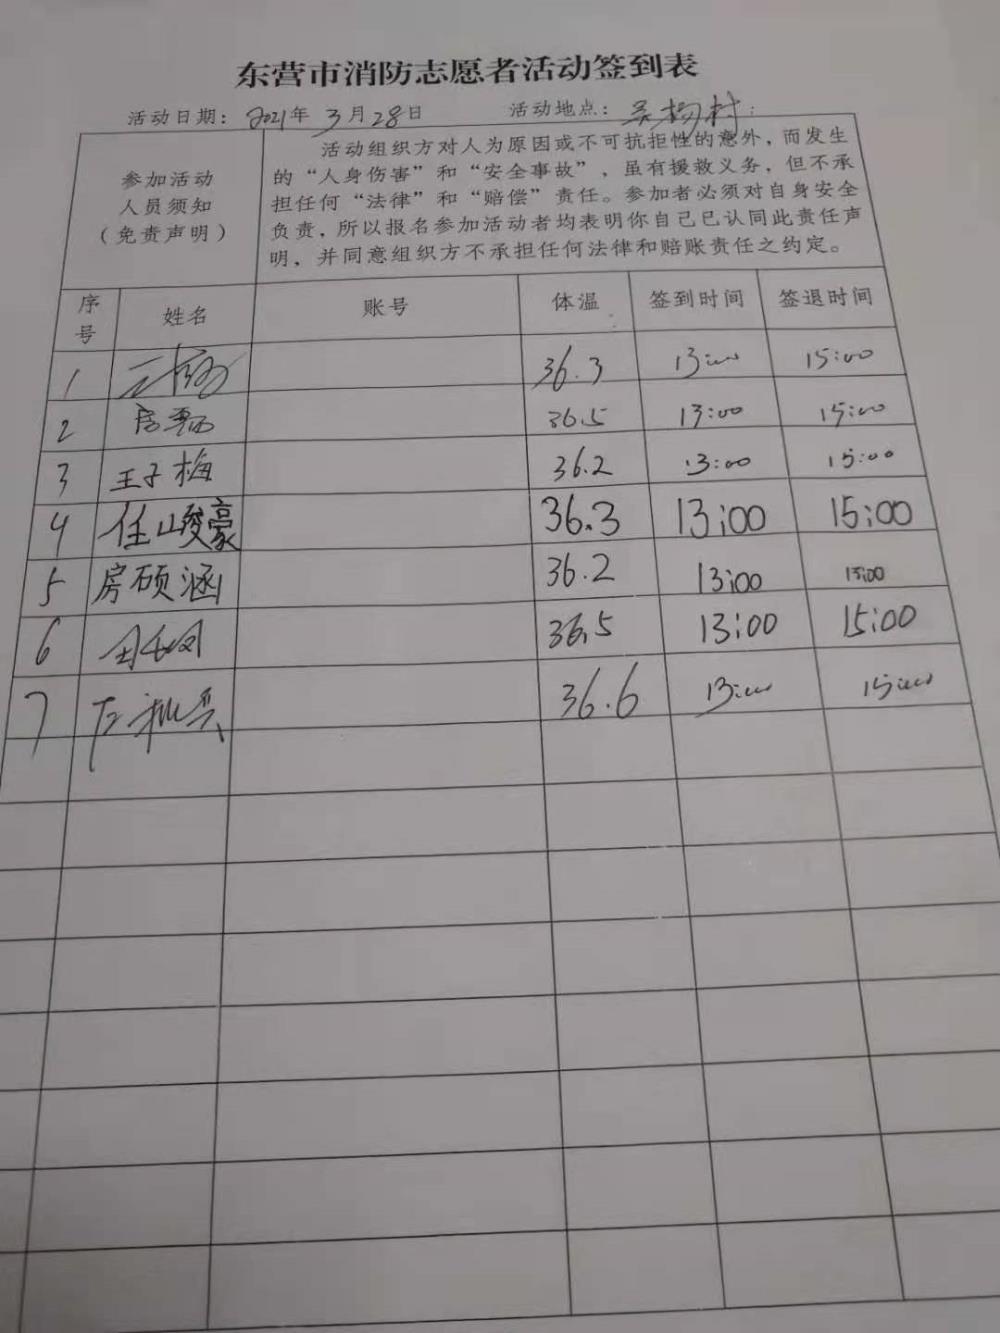 东营市消防志愿者活动签到表
活动日期：2021年3月28日 活动地点：吴杨村
参加活动
人员须知
（免责声明）
活动组织方对人为原因或不可抗拒性的意外，而发生
的“人身伤害”和“安全事故”，虽有援救义务，但不承
担任何“法律”和“赔偿”责任。参加者必须对自身安全
负责，所以报名参加活动者均表明你自己已认同此责任声
明，并同意组织方不承担任何法律和赔账责任之约定。
序号 姓名 账号 体温 签到时间 签退时间
1 36.3 13:00 15:00
2 36.5 13:00 15:00
3 王子梅 36.2 13:00 15:00
4 任山峻豪 36.3 13:00 15:00
5 房硕涵 36.2 13:00 13:00
6 36.5 13:00 15:00
7 36.6 13:00 15:00